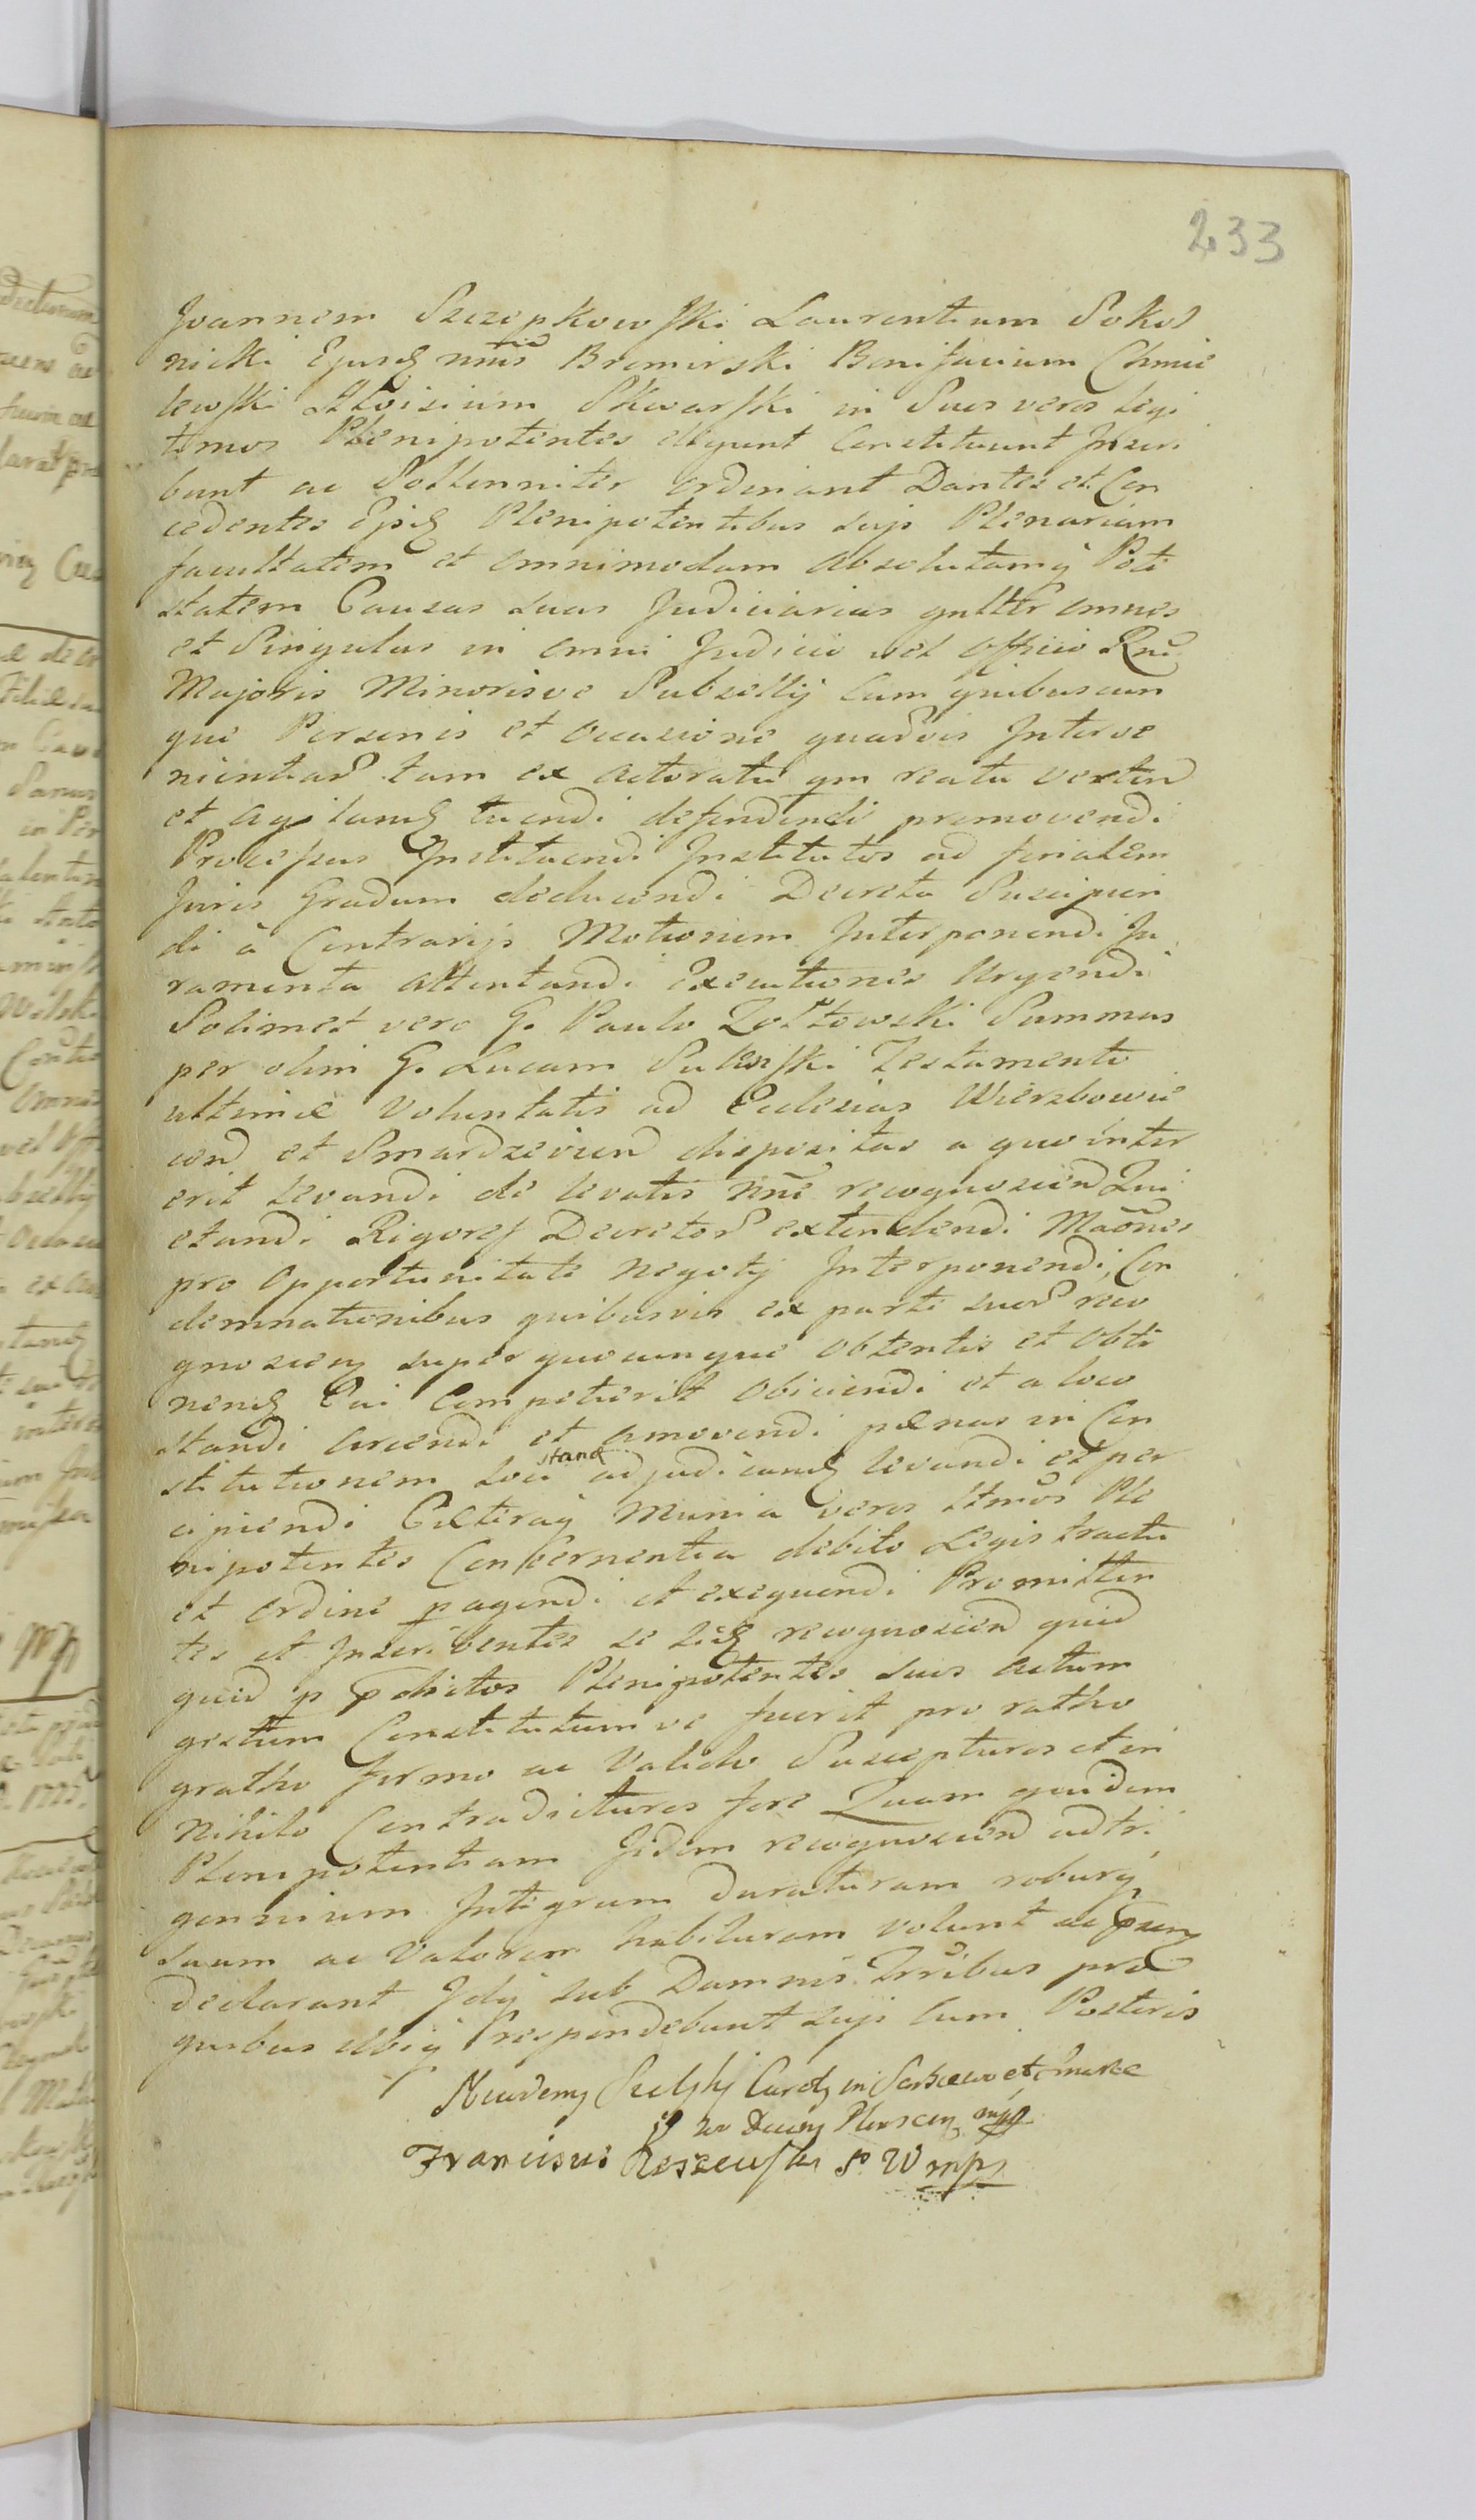 233
Joannem Szczepkowski Laurentium Sokol
nicki Ejusdq nnis Bromirski Bonifacium Chmie
lewski Aloisium Skwarski in Suos veros legi
timos Plenipotentes eligunt Constituunt Inscri
bunt ac Sollenniter ordinant Dantes et Con
cedentes Ejsdq Plenipotentibus suis Plenariam
facultatem et omnimodam absolutamq Pote
statem Causas suas Judiciarias gnltr omnes
et Singulas in omni Judicio vel officio Rni
Majoris Minorisve Subsellij Cum quibuscun
que Personis et occasione quarvis Interve
nientiar tam ex actoratu qm reatu verten
et agitandq tuendi defendendi promovendi
Processus Instituendi Institutos ad finalem
Juris Gradum deducendi Decreta Suscipien
di à Contrarijs Motionem Interponendi Ju
ramenta attentandi Executiones Urgendi
Solimet vero G. Paulo Zoltowski Summas
per olim G. Lucam Sulerski Testamento
ultimæ Voluntatis ad Eclesias Wierzbowie
cen et Smardzevien dispositas a quo inter
erit levandi de levatis nne recognoscen Qui
etandi Rigores Decretor extendendi Maones
pro opportunitate negotij Interponendi, Con
demnationibus quibusvis ex parte suor reco
gnoscen super quocunque obtentis et obti
nendq Cui Competierit obiiciendi et a loco
standi arcendi et amovendi pænas in Con
stitutionem loci stand adjudicandq levandi et per
cipiendi Cæteraq Munia veros ltmos Ple
nipotentes Concernentia debito Legis tractu
et ordine pagendi et exequendi Promitten
tes et Inscribentes se iidq recognoscen quid
quid p pdictos Plenipotentes suos actum
gestum Constitutum ve fuerit pro ratho
gratho firmo ac Valido Suscepturos et in
Nihilo Contradicturos fore Quam quidem
Plenipotentiam Iidem recognoscen ad tri
gennium Integrum duraturam roburq
suum ac Valorem habituram volunt ac psen
declarant Idq sub Damnis Trribus pro
quibus ubiq respondebunt suis cum Posteris
Franciscus Reszewski mp